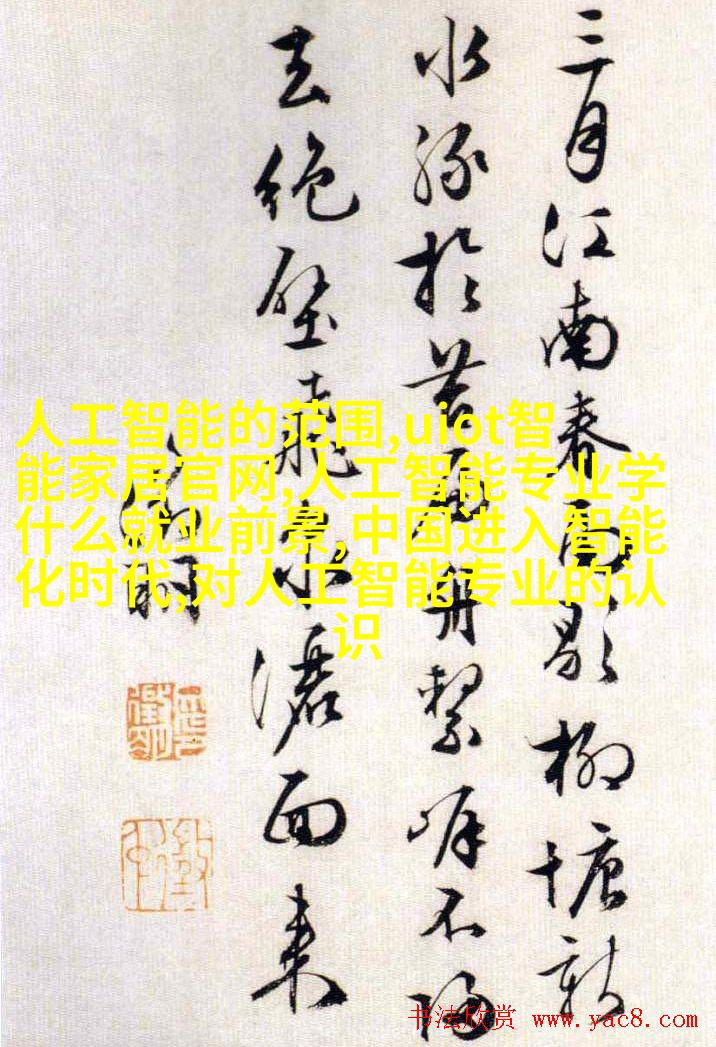 三月江南春雨歇柳塘新
水綠於苔扁舟繫岸不歸
去絕壁飛泉灑面來
人工智能的范围,uiot智
能家居官网,人工智能专业学
什么就业前景,中国进入智能
化时代,对人工智能专业的认
识
书法欣赏 www.yac8.com